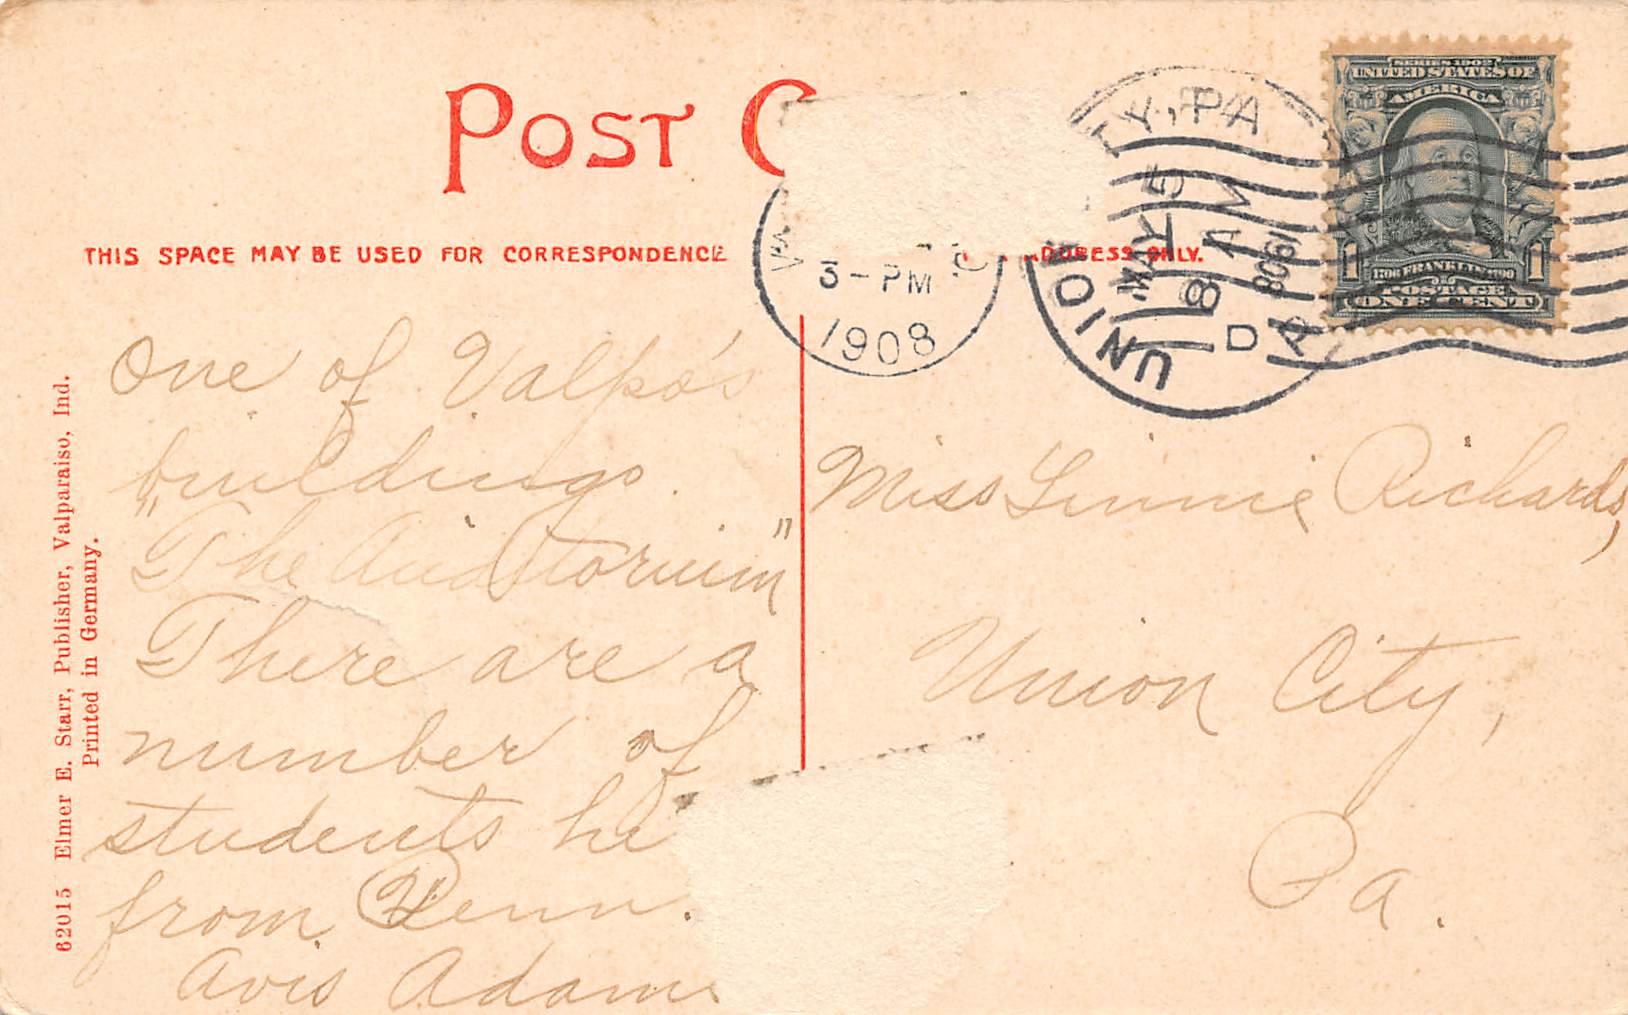 POST C
THIS SPACE MAY BE USED FOR CORRESPONDENCE
ADDRESS ONLY.
3-PM
1908
UNION TY, PA
MAY 5
8 AM
1908
D
SERIES 1902
UNITED STATES OF
AMERICA
1 1
1706 FRANKLIN 1790
POSTAGE
ONE CENT
One of Valpo's
buildings.
"The Auditorium"
There are a
number of
students he
from Penn.
Avis Adam
Miss Linnie Richards,
Union City,
Pa.
62015 Elmer E. Starr, Publisher, Valparaiso, Ind.
Printed in Germany.